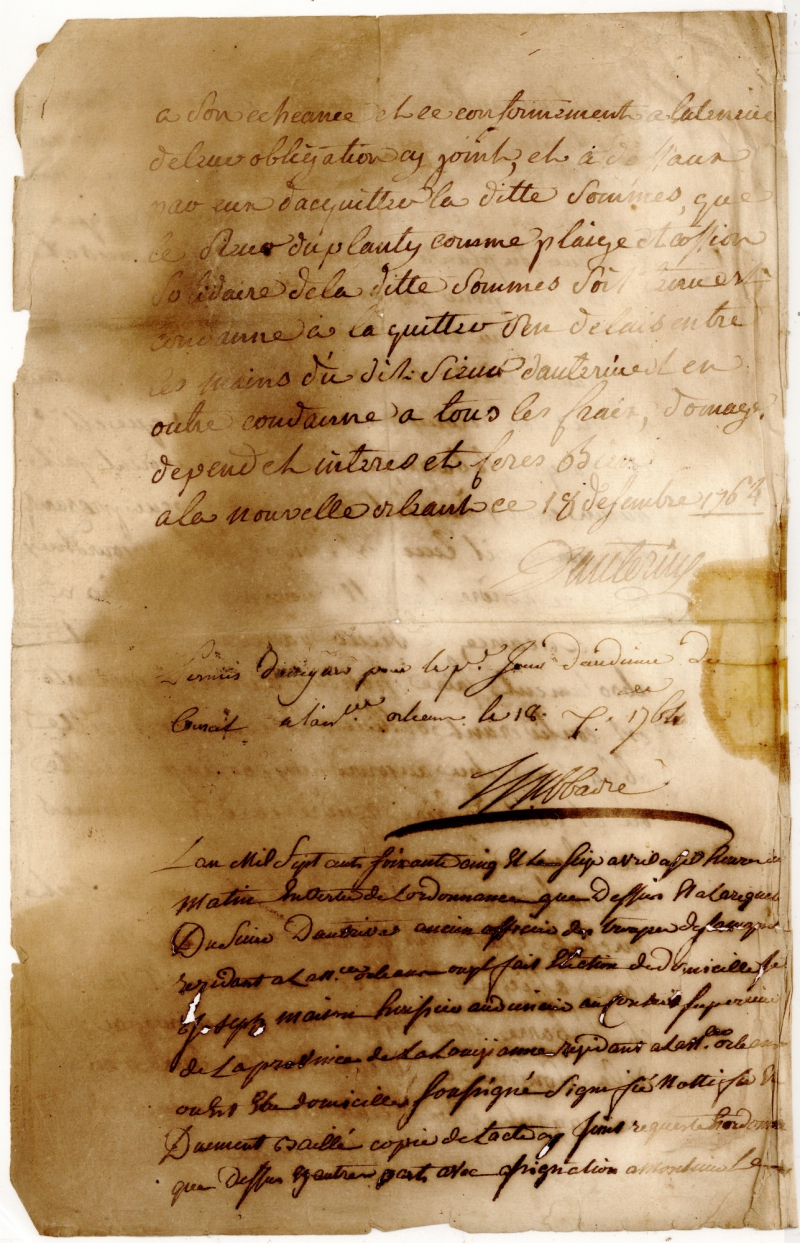 a son echeance et ce conformement a lateneur
deleur obligation cy joint, et à deffaux
par eux dacquitter la ditte sommes, que
le sieur duplanty comme plaige et cossion
solidaire dela ditte sommes soit tenu et
condanné à la quitter sen delais entre
les mains du dit Sieur dauterive et en
outre condanne a tous les frais, domage,
depend et interes et feres bien
ala nouvelle orleant ce 18 desembre 1764
Dauterive
Permis dassigner pour le pr. Jour daudience du
Conseil a la nlle orleans le 18 xbre 1764
Lan Mil Sept cents soixante cinq et le seize avril a sept heures du
matin En vertu de Lordonnance que Dessus et a la requete
Du Sieur Dauterive ancien officier des troupes de
residant a La nlle orleans ou il fait Election de domicille Je
Joseph maison huissier audiencier au Conseil superieur
de La province de La Louisianne residant a La nlle orleans
ou est Elu domicille soussigné signifié Nottifié Et
Duement Baillé copie de Lacte cy joint requeste Lordonnance
que dessus et autres parts avec assignation a monsieur Le